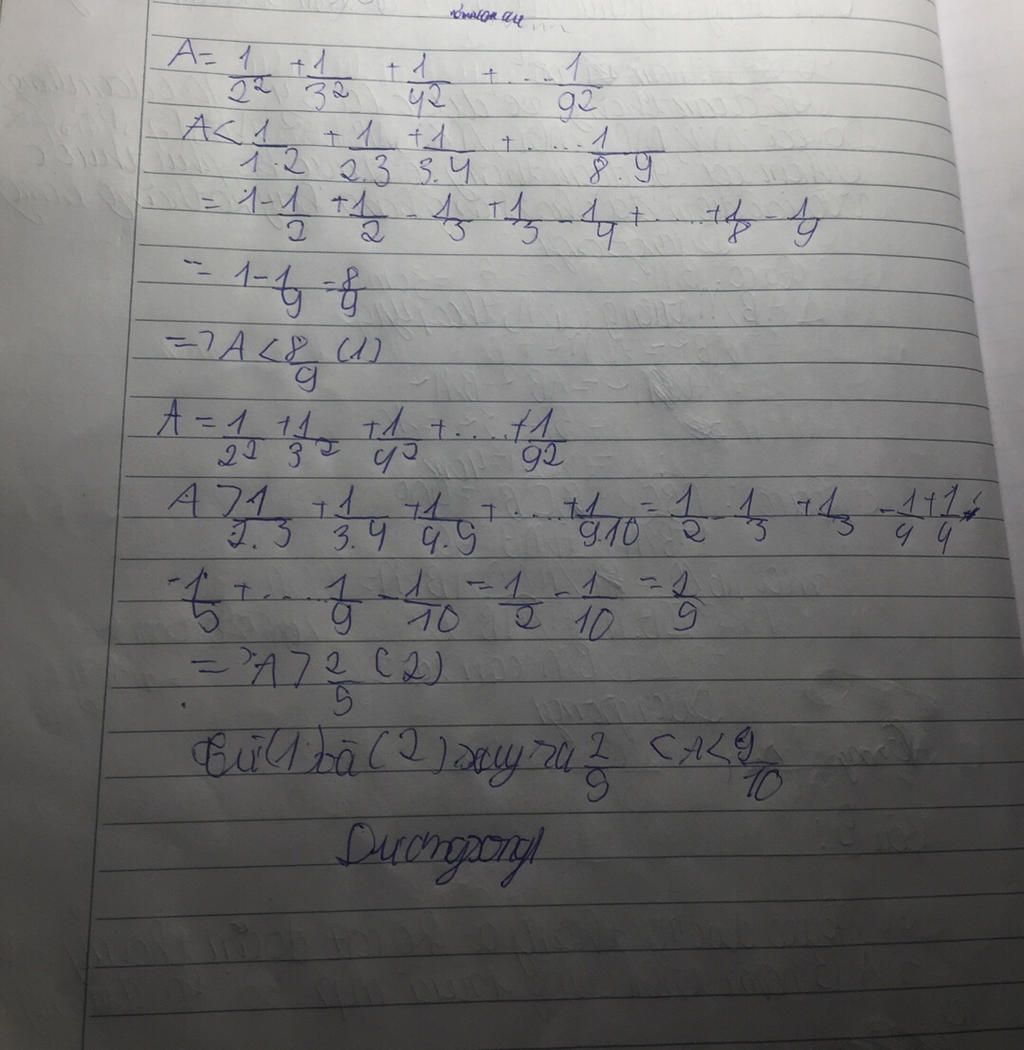 A = 1/2² + 1/3² + 1/4² + ... 1/9²
A < 1/1.2 + 1/2.3 + 1/3.4 + .... 1/8.9
= 1 - 1/2 + 1/2 - 1/3 + 1/3 - 1/4 + ..... + 1/8 - 1/9
= 1 - 1/9 = 8/9
=> A < 8/9 (1)
A = 1/2² + 1/3² + 1/4² + ..... + 1/9²
A > 1/2.3 + 1/3.4 + 1/4.5 + .... + 1/9.10 = 1/2 - 1/3 + 1/3 - 1/4 + 1/4
- 1/5 + .... 1/9 - 1/10 = 1/2 - 1/10 = 2/9
=> A > 2/5 (2)
(1) và (2) suy ra 2/9 < A < 9/10